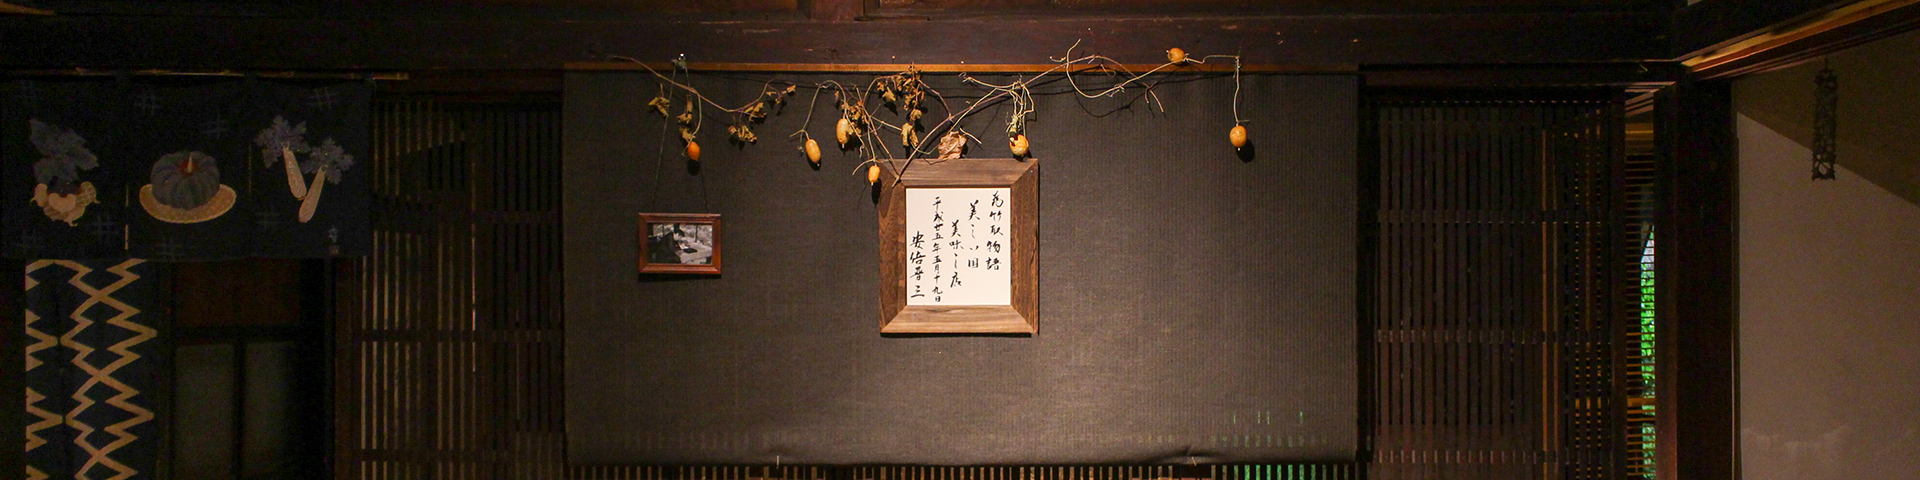 為竹取物語
美しい国
美味しい店
平成廿五年五月十九日
安倍晋三